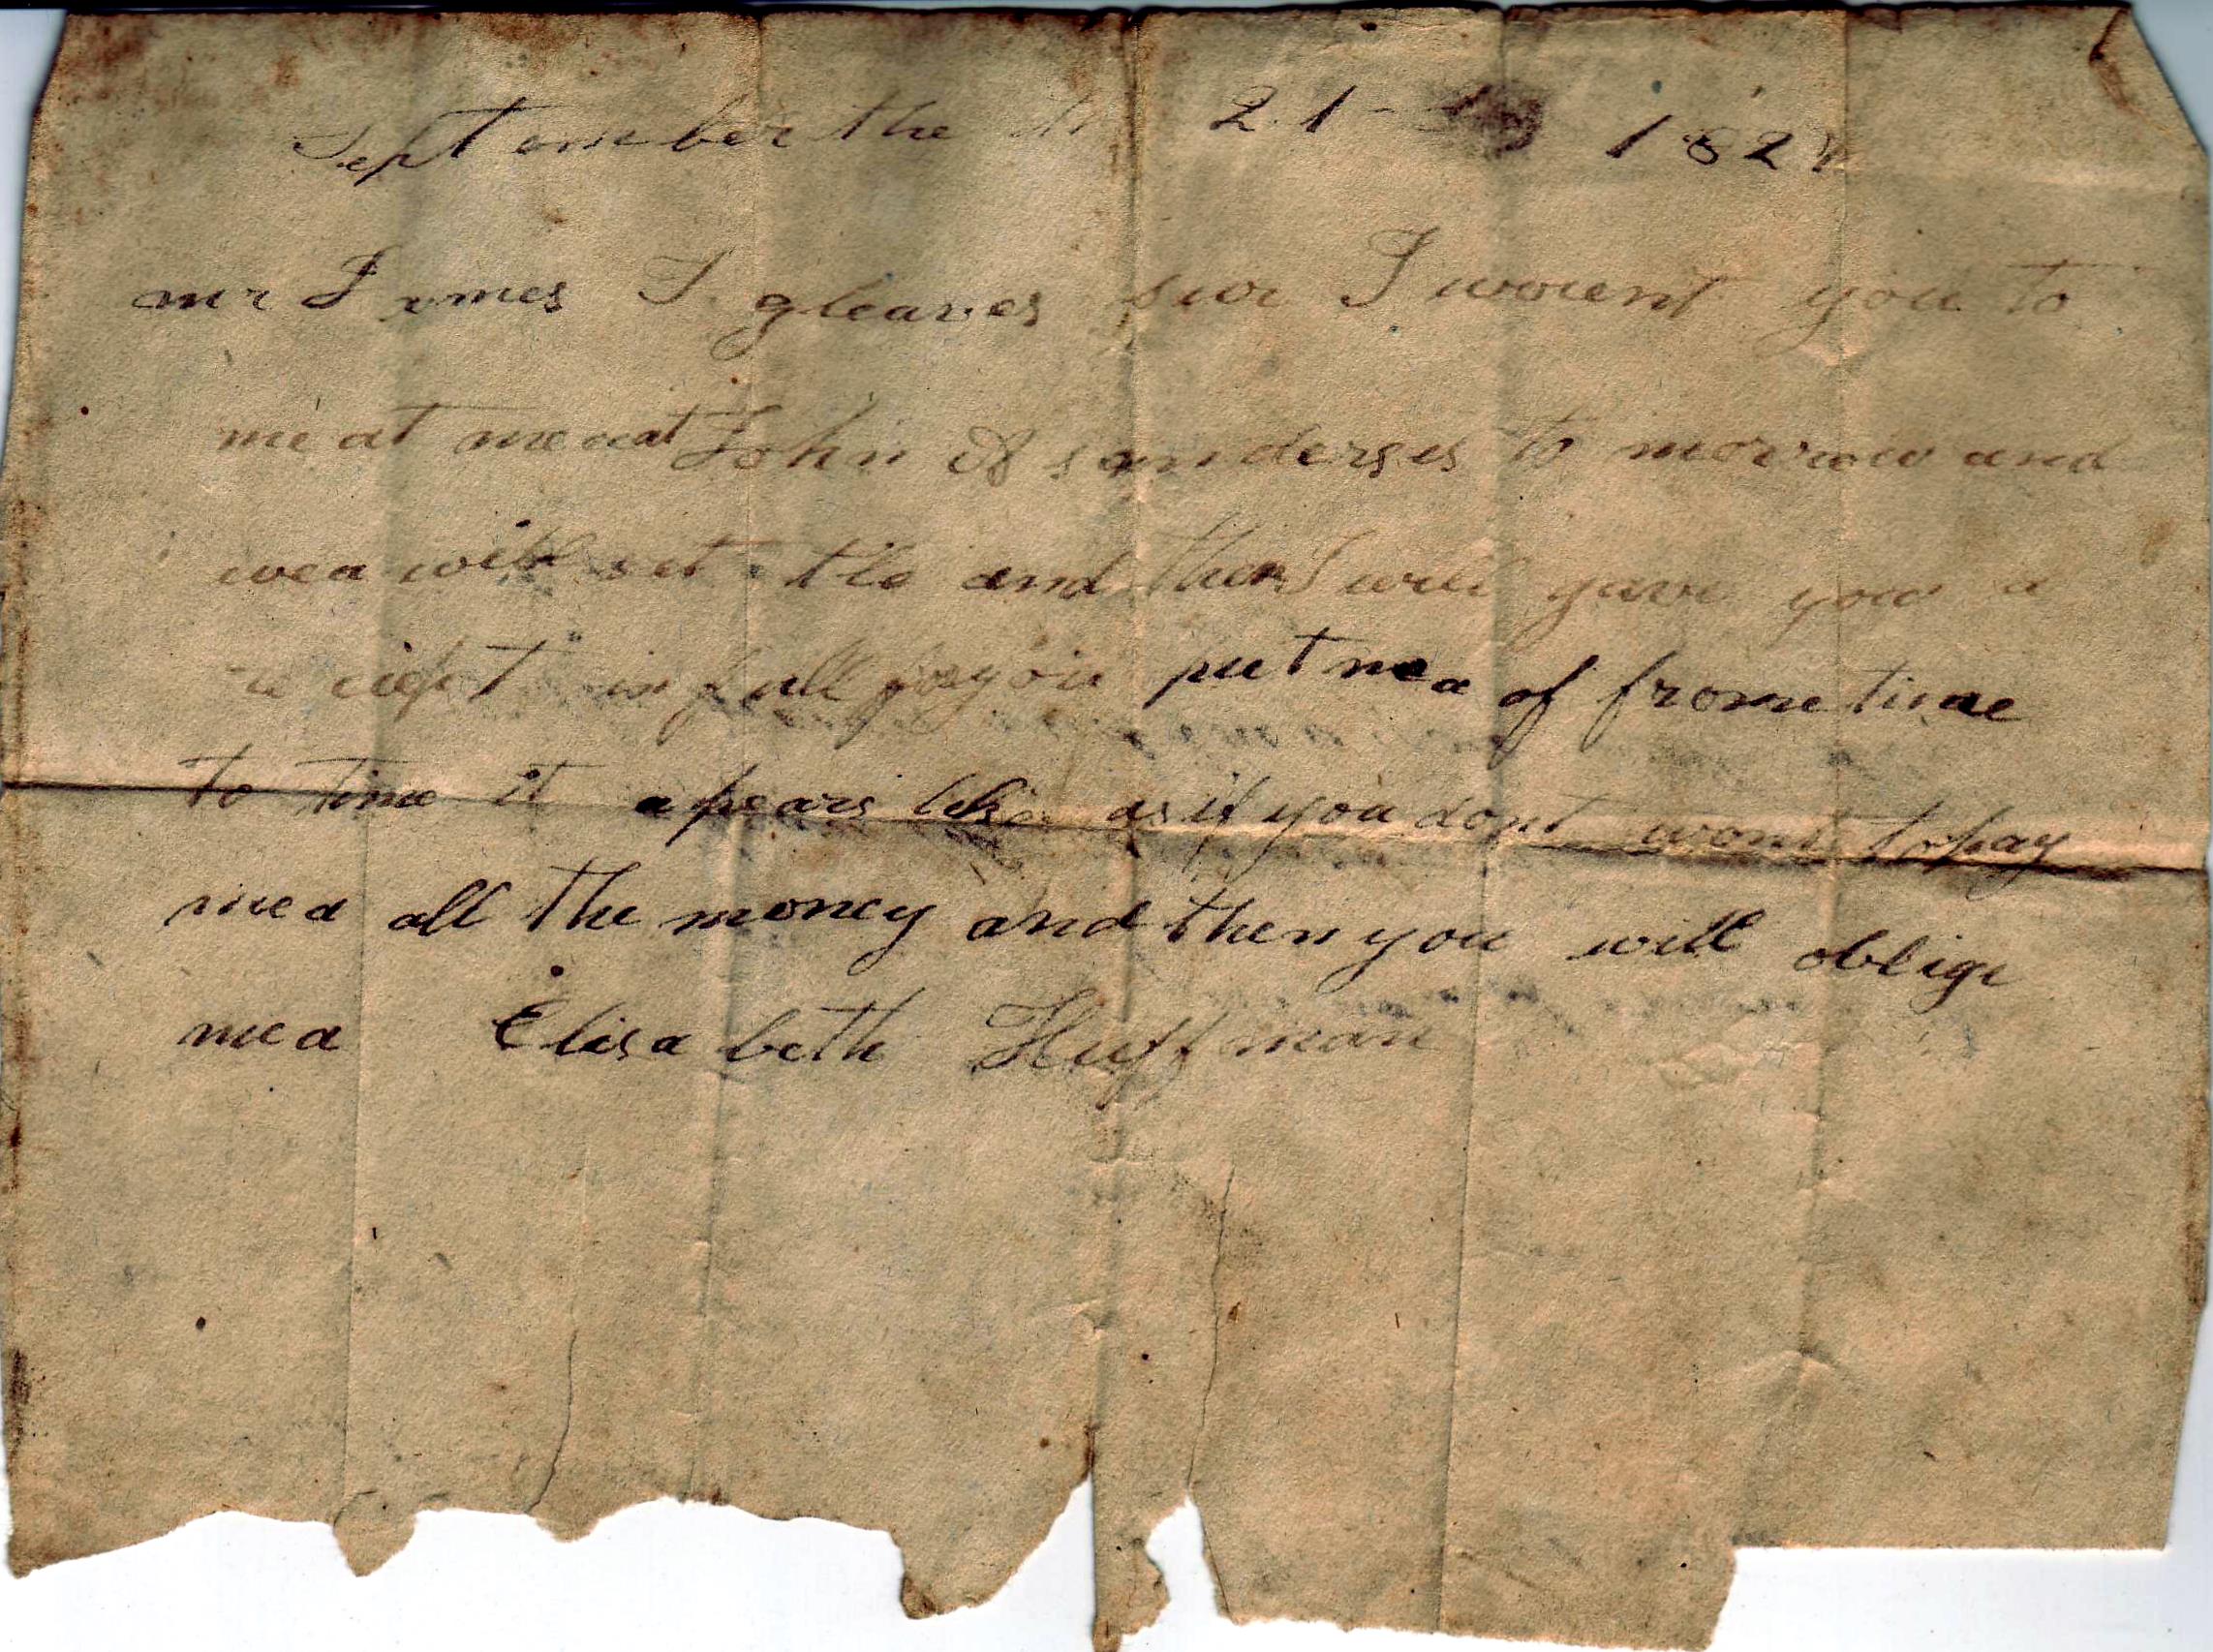 September the 21 182
mr James T. gleaves sur I wount you to
me at mea at John A sanderses to morrow and
wea will set tle and then I will gave you a
in full you put mea of frome time
to time it apears like as if you dont wont to pay
mea all the money and then you will oblige
mea Elisabeth Huffman